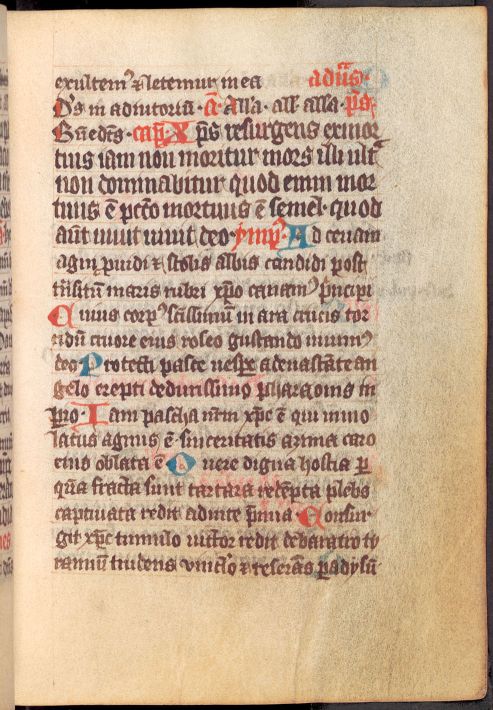 exultemꝰ ⁊ letemur in ea ad uſ̄s·
Ds in adiutoriū · a̅ · Alla · all̅ · alla · pſ̄
Bn̄edc̄s · capl̅ Xp̄s reſurgens ex mor
tuis iam non moritur mors illi ult̅
non dominabitur quod enim mor
tuus ē pct̄o mortuus ē ſemel · quod
aūt uiuit uiuit deo · ymp̅ · Ad cenam
agni ꝓuidi ⁊ ſtolis albis candidi poſt
tn̄ſitū maris rubri xp̄o canamꝰ pͥncipi
Cuius corpꝰ ſc̄iſſimū in ara crucis tor
ridū cruore eius roſeo guſtando uiuimꝰ
deo Protecti paſce ueſꝑe a deuaſtāte an
gelo erepti de duriſſimo pharaonis im
ꝑio · Iam paſcha nr̄m xp̄c ē qui inmo
latus agnus ē · ſinceritatis azima caro
eius oblata ē O uere digna hoſtia ꝑ
quā fracta ſunt tartara redēpta plebs
captiuata redit ad uite p̄mia · Conſur
git xp̄c tumulo uictor redit de baratro ty
rannū trudens uinclo ⁊ reſerās ꝑadyſū